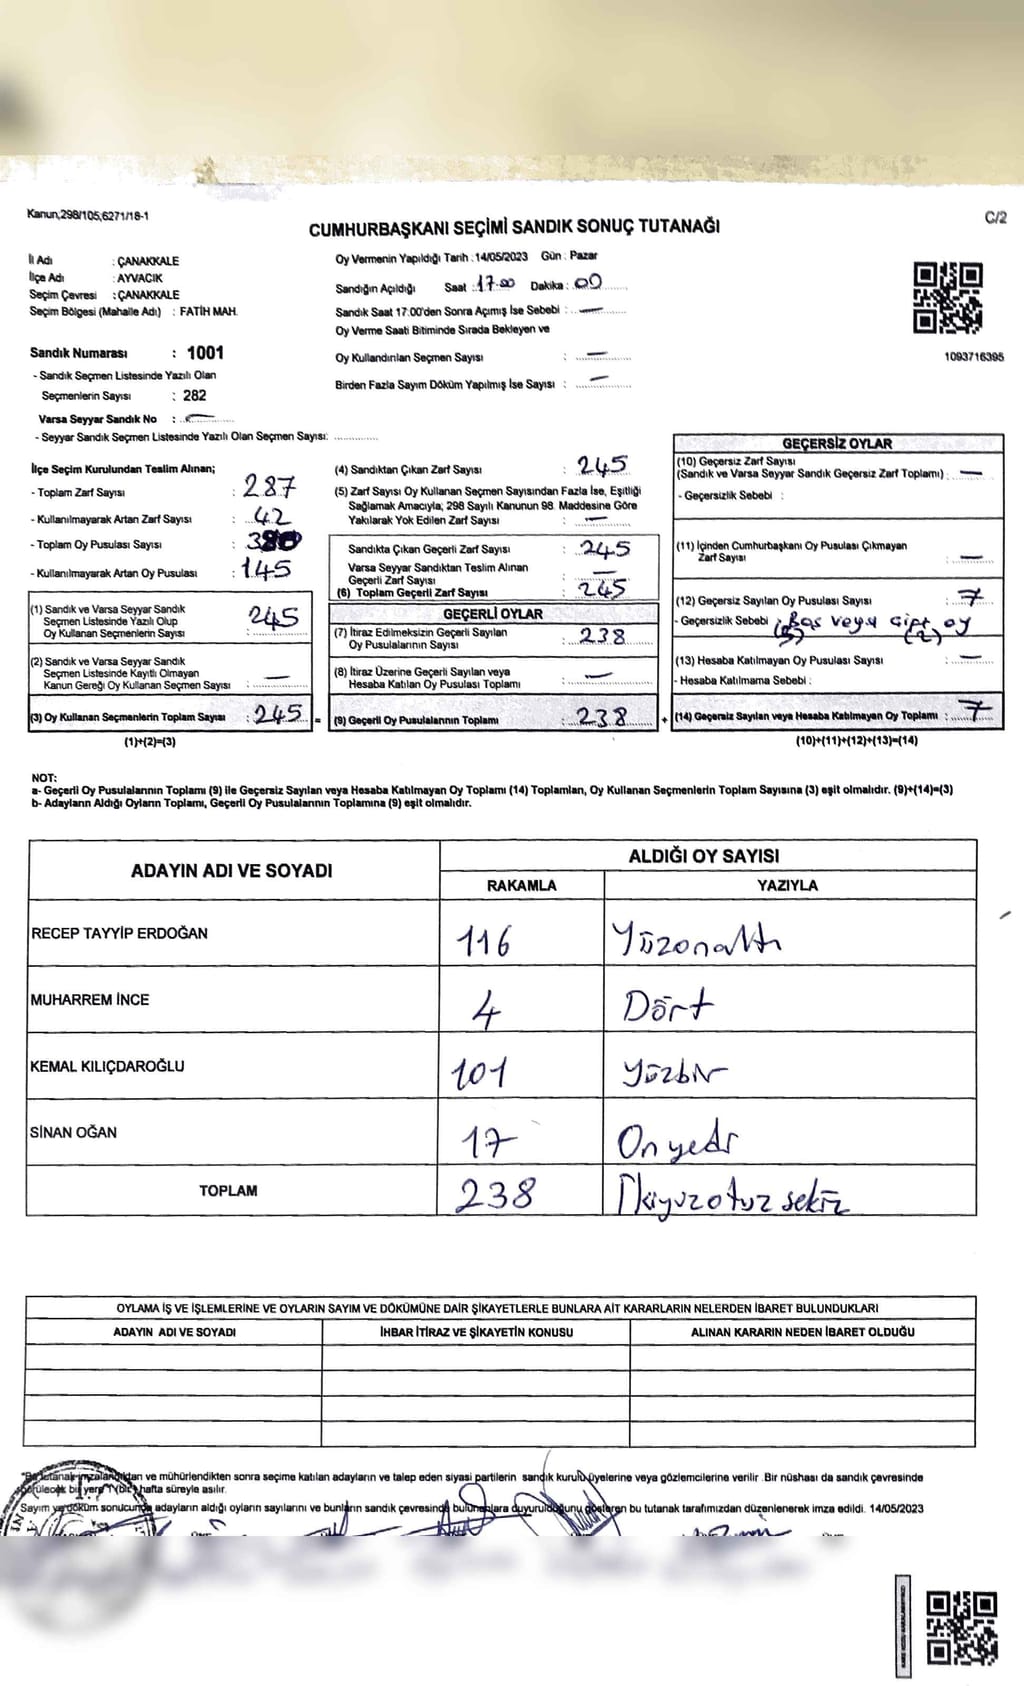 Kanun,298/105,6271/18-1
C/2
CUMHURBAŞKANI SEÇİMİ SANDIK SONUÇ TUTANAĞI
İl Adı : ÇANAKKALE
İlçe Adı : AYVACIK
Seçim Çevresi : ÇANAKKALE
Seçim Bölgesi (Mahalle Adı) : FATİH MAH.
Sandık Numarası : 1001
- Sandık Seçmen Listesinde Yazılı Olan
Seçmenlerin Sayısı : 282
Varsa Seyyar Sandık No : —
- Seyyar Sandık Seçmen Listesinde Yazılı Olan Seçmen Sayısı: ..............
Oy Vermenin Yapıldığı Tarih : 14/05/2023 Gün : Pazar
Sandığın Açıldığı Saat : 17.00 Dakika : 00
Sandık Saat 17.00'den Sonra Açımış İse Sebebi : —
Oy Verme Saati Bitiminde Sırada Bekleyen ve
Oy Kullandırılan Seçmen Sayısı : —
Birden Fazla Sayım Döküm Yapılmış İse Sayısı : —
1093716395
İlçe Seçim Kurulundan Teslim Alınan;
- Toplam Zarf Sayısı : 287
- Kullanılmayarak Artan Zarf Sayısı : 42
- Toplam Oy Pusulası Sayısı :
- Kullanılmayarak Artan Oy Pusulası : 145
(1) Sandık ve Varsa Seyyar Sandık
Seçmen Listesinde Yazılı Olup
Oy Kullanan Seçmenlerin Sayısı : 245
(2) Sandık ve Varsa Seyyar Sandık
Seçmen Listesinde Kayıtlı Olmayan
Kanun Gereği Oy Kullanan Seçmen Sayısı : —
(3) Oy Kullanan Seçmenlerin Toplam Sayısı : 245 =
(1)+(2)=(3)
(4) Sandıktan Çıkan Zarf Sayısı : 245
(5) Zarf Sayısı Oy Kullanan Seçmen Sayısından Fazla İse, Eşitliği
Sağlamak Amacıyla; 298 Sayılı Kanunun 98. Maddesine Göre
Yakılarak Yok Edilen Zarf Sayısı : —
Sandıkta Çıkan Geçerli Zarf Sayısı : 245
Varsa Seyyar Sandıktan Teslim Alınan
Geçerli Zarf Sayısı : —
(6) Toplam Geçerli Zarf Sayısı : 245
GEÇERLİ OYLAR
(7) İtiraz Edilmeksizin Geçerli Sayılan
Oy Pusulalarının Sayısı : 238
(8) İtiraz Üzerine Geçerli Sayılan veya
Hesaba Katılan Oy Pusulası Toplamı : —
(9) Geçerli Oy Pusulalarının Toplamı : 238 +
GEÇERSİZ OYLAR
(10) Geçersiz Zarf Sayısı
(Sandık ve Varsa Seyyar Sandık Geçersiz Zarf Toplamı) : —
- Geçersizlik Sebebi :
(11) İçinden Cumhurbaşkanı Oy Pusulası Çıkmayan
Zarf Sayısı : —
(12) Geçersiz Sayılan Oy Pusulası Sayısı : 7
- Geçersizlik Sebebi : Boş veya Çift oy
(5) (2)
(13) Hesaba Katılmayan Oy Pusulası Sayısı : —
- Hesaba Katılmama Sebebi :
(14) Geçersiz Sayılan veya Hesaba Katılmayan Oy Toplamı : 7
(10)+(11)+(12)+(13)=(14)
NOT:
a- Geçerli Oy Pusulalarının Toplamı (9) ile Geçersiz Sayılan veya Hesaba Katılmayan Oy Toplamı (14) Toplamları, Oy Kullanan Seçmenlerin Toplam Sayısına (3) eşit olmalıdır. (9)+(14)=(3)
b- Adayların Aldığı Oyların Toplamı, Geçerli Oy Pusulalarının Toplamına (9) eşit olmalıdır.
ADAYIN ADI VE SOYADI
ALDIĞI OY SAYISI
RAKAMLA YAZIYLA
RECEP TAYYİP ERDOĞAN 116 Yüzonaltı
MUHARREM İNCE 4 Dört
KEMAL KILIÇDAROĞLU 101 Yüzbir
SİNAN OĞAN 17 Onyedi
TOPLAM 238 İkiyuzotuz sekiz
OYLAMA İŞ VE İŞLEMLERİNE VE OYLARIN SAYIM VE DÖKÜMÜNE DAİR ŞİKAYETLERLE BUNLARA AİT KARARLARIN NELERDEN İBARET BULUNDUKLARI
ADAYIN ADI VE SOYADI İHBAR İTİRAZ VE ŞİKAYETİN KONUSU ALINAN KARARIN NEDEN İBARET OLDUĞU
ve mühürlendikten sonra seçime katılan adayların ve talep eden siyasi partilerin sandık kurulu üyelerine veya gözlemcilerine verilir .Bir nüshası da sandık çevresinde
bir yere 1(bir) hafta süreyle asılır.
Sayım ve döküm sonucunda adayların aldığı oyların sayılarını ve bunların sandık çevresinde bulunanlara duyurulduğunu gösteren bu tutanak tarafımızdan düzenlenerek imza edildi. 14/05/2023